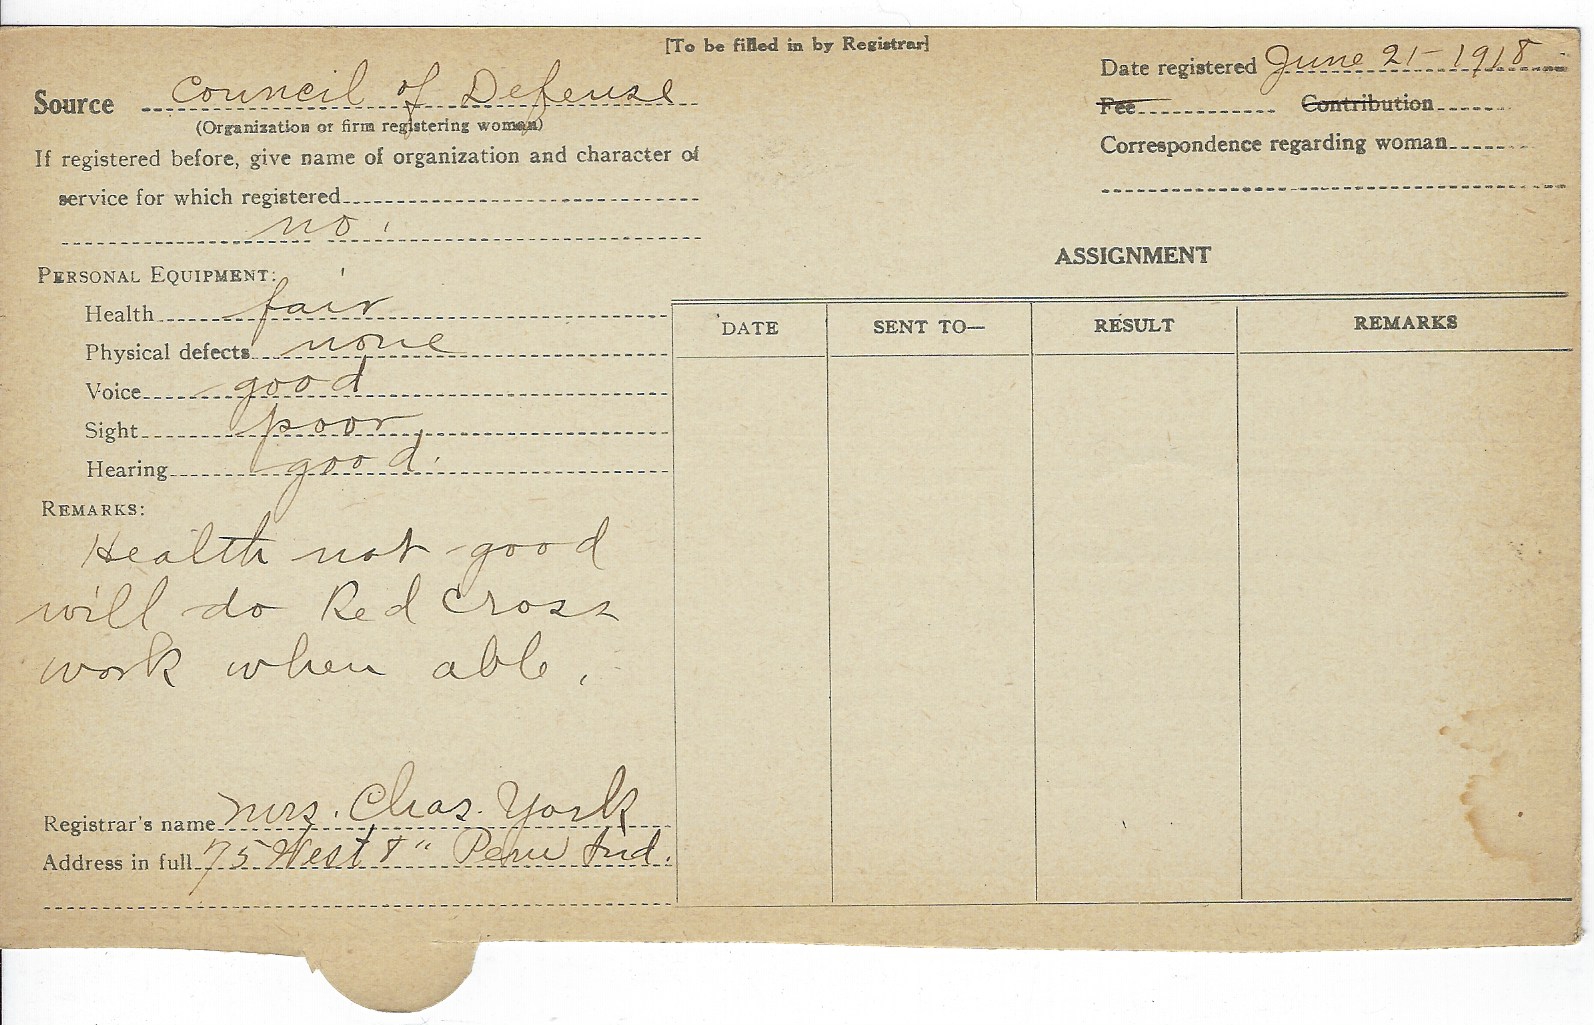 [To be filled in by Registrar]
Source Council of Defense
(Organization or firm registering woman)
If registered before, give name of organization and character of
service for which registered
no.
PERSONAL EQUIPMENT:
Health fair
Physical defects none
Voice good
Sight poor
Hearing good.
REMARKS:
Health not good
will do Red Cross
work when able.
Registrar's name Mrs. Chas. York
Address in full 75 West Peru Ind.
Date registered June 21 - 1918
Fee Contribution
Correspondence regarding woman
ASSIGNMENT
DATE SENT TO— RESULT REMARKS